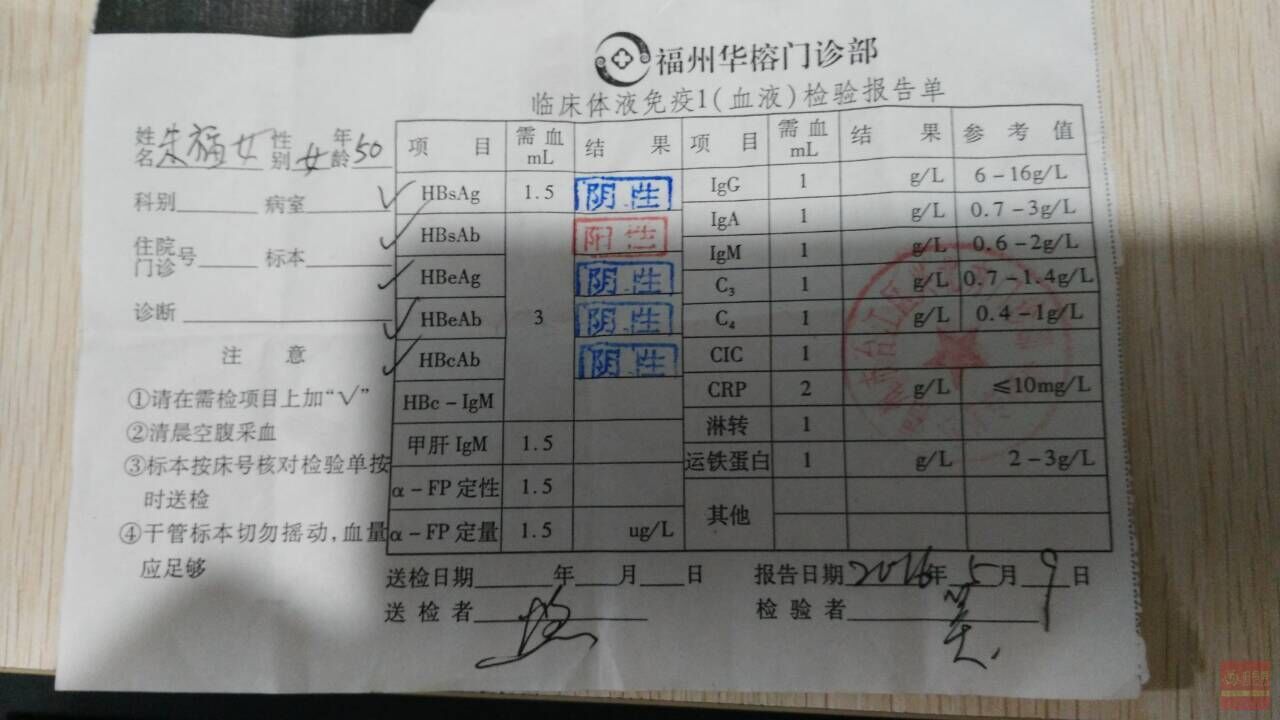 福州华榕门诊部
临床体液免疫1(血液)检验报告单
姓名朱福女 性别女 年龄50
科别 病室
住院门诊号 标本
诊断
注 意
①请在需检项目上加“√”
②清晨空腹采血
③标本按床号核对检验单按
时送检
④干管标本切勿摇动,血量
应足够
项 目 需血mL 结 果 项 目 需血mL 结 果 参考值
√ HBsAg 1.5 阴性 IgG 1 g/L 6-16g/L
√ HBsAb 阳性 IgA 1 g/L 0.7-3g/L
IgM 1 g/L 0.6-2g/L
√ HBeAg 阴性 C₃ 1 g/L 0.7-1.4g/L
√ HBeAb 3 阴性 C₄ 1 g/L 0.4-1g/L
√ HBcAb 阴性 CIC 1
HBc-IgM CRP 2 g/L ≤10mg/L
甲肝 IgM 1.5 淋转 1
α-FP 定性 1.5 运铁蛋白 1 g/L 2-3g/L
α-FP 定量 1.5 ug/L 其他
送检日期 年 月 日 报告日期 2016年 5月 9日
送检者 检验者